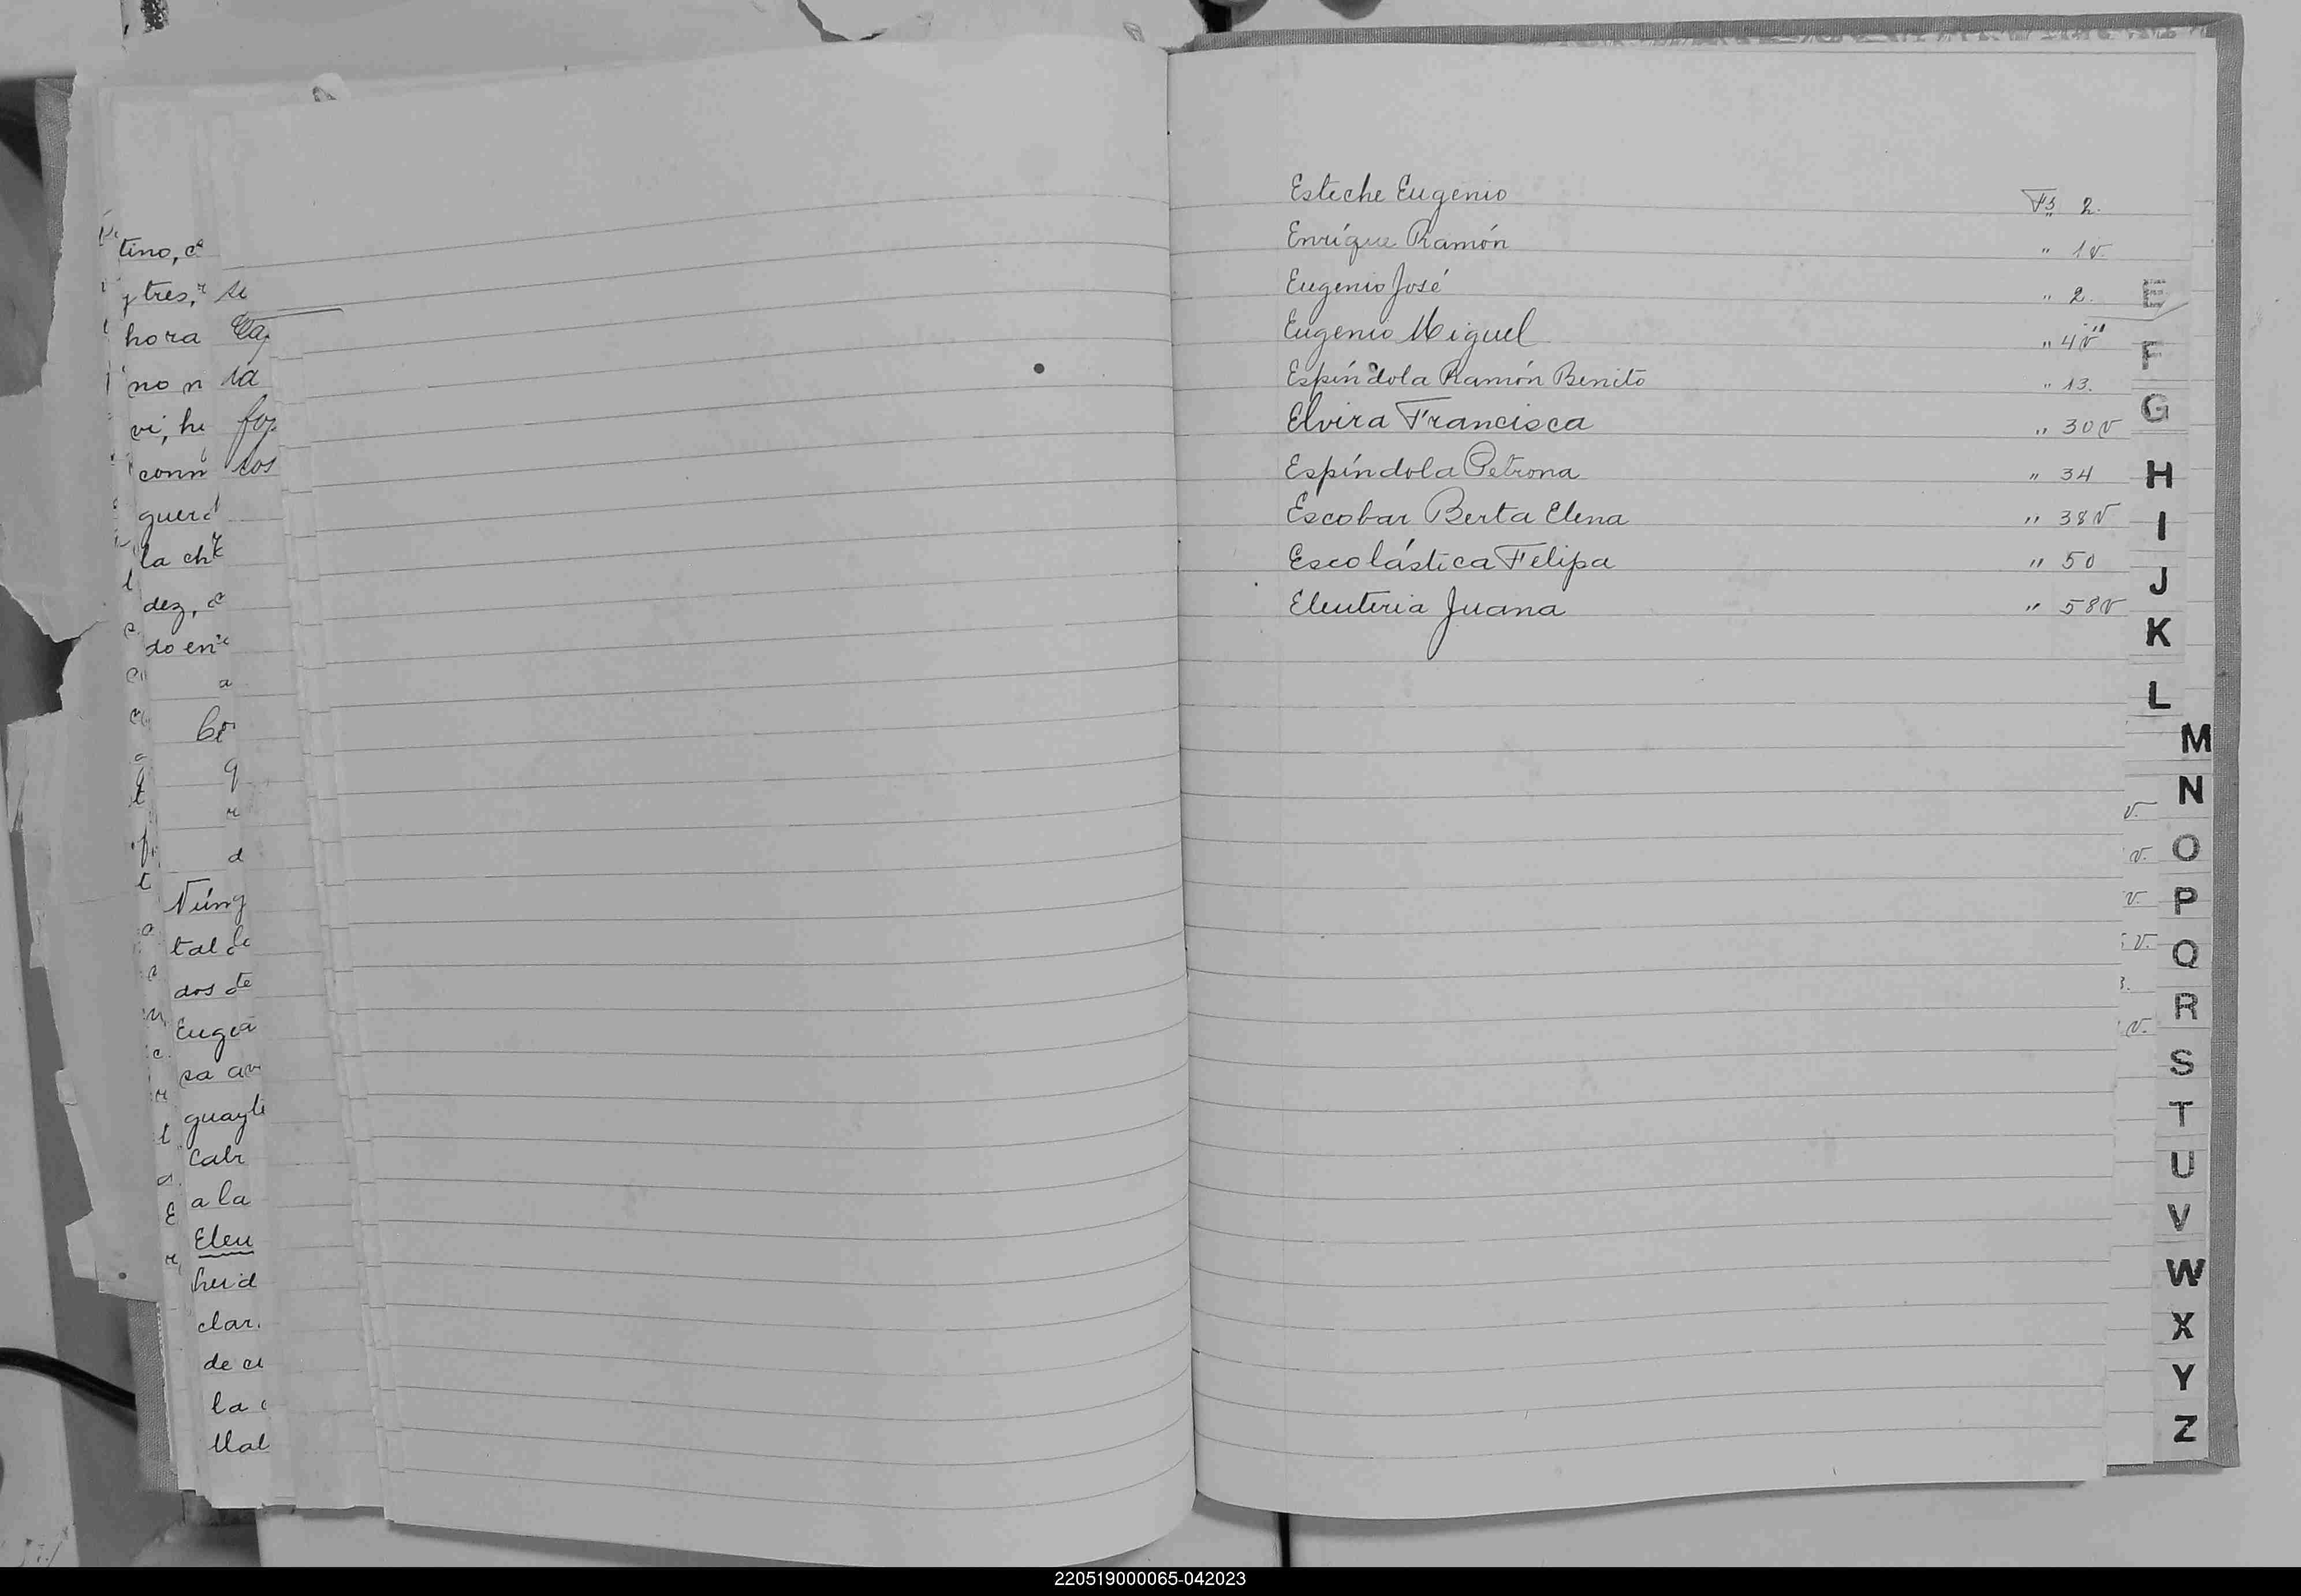 tino, c
y tres, se
hora
no n
vi, he
conn
la ch
dez,
do en
tal
dos de
Euge
sa av
guay
Cabr
a la
Eleu
her d
clar.
de
la
Esteche Eugenio Fs 2.
Enríque Ramón " 1v.
Eugenio José " 2.
Eugenio Miguel " 4v
Espíndola Ramón Benito " 13.
Elvira Francisca " 30v
Espíndola Petrona " 34
Escobar Berta Elena " 38v
Escolástica Felipa " 50
Eleuteria Juana " 58v
E
F
G
H
I
J
K
L
M
N
O
P
Q
R
S
T
U
V
W
X
Y
Z
220519000065-042023